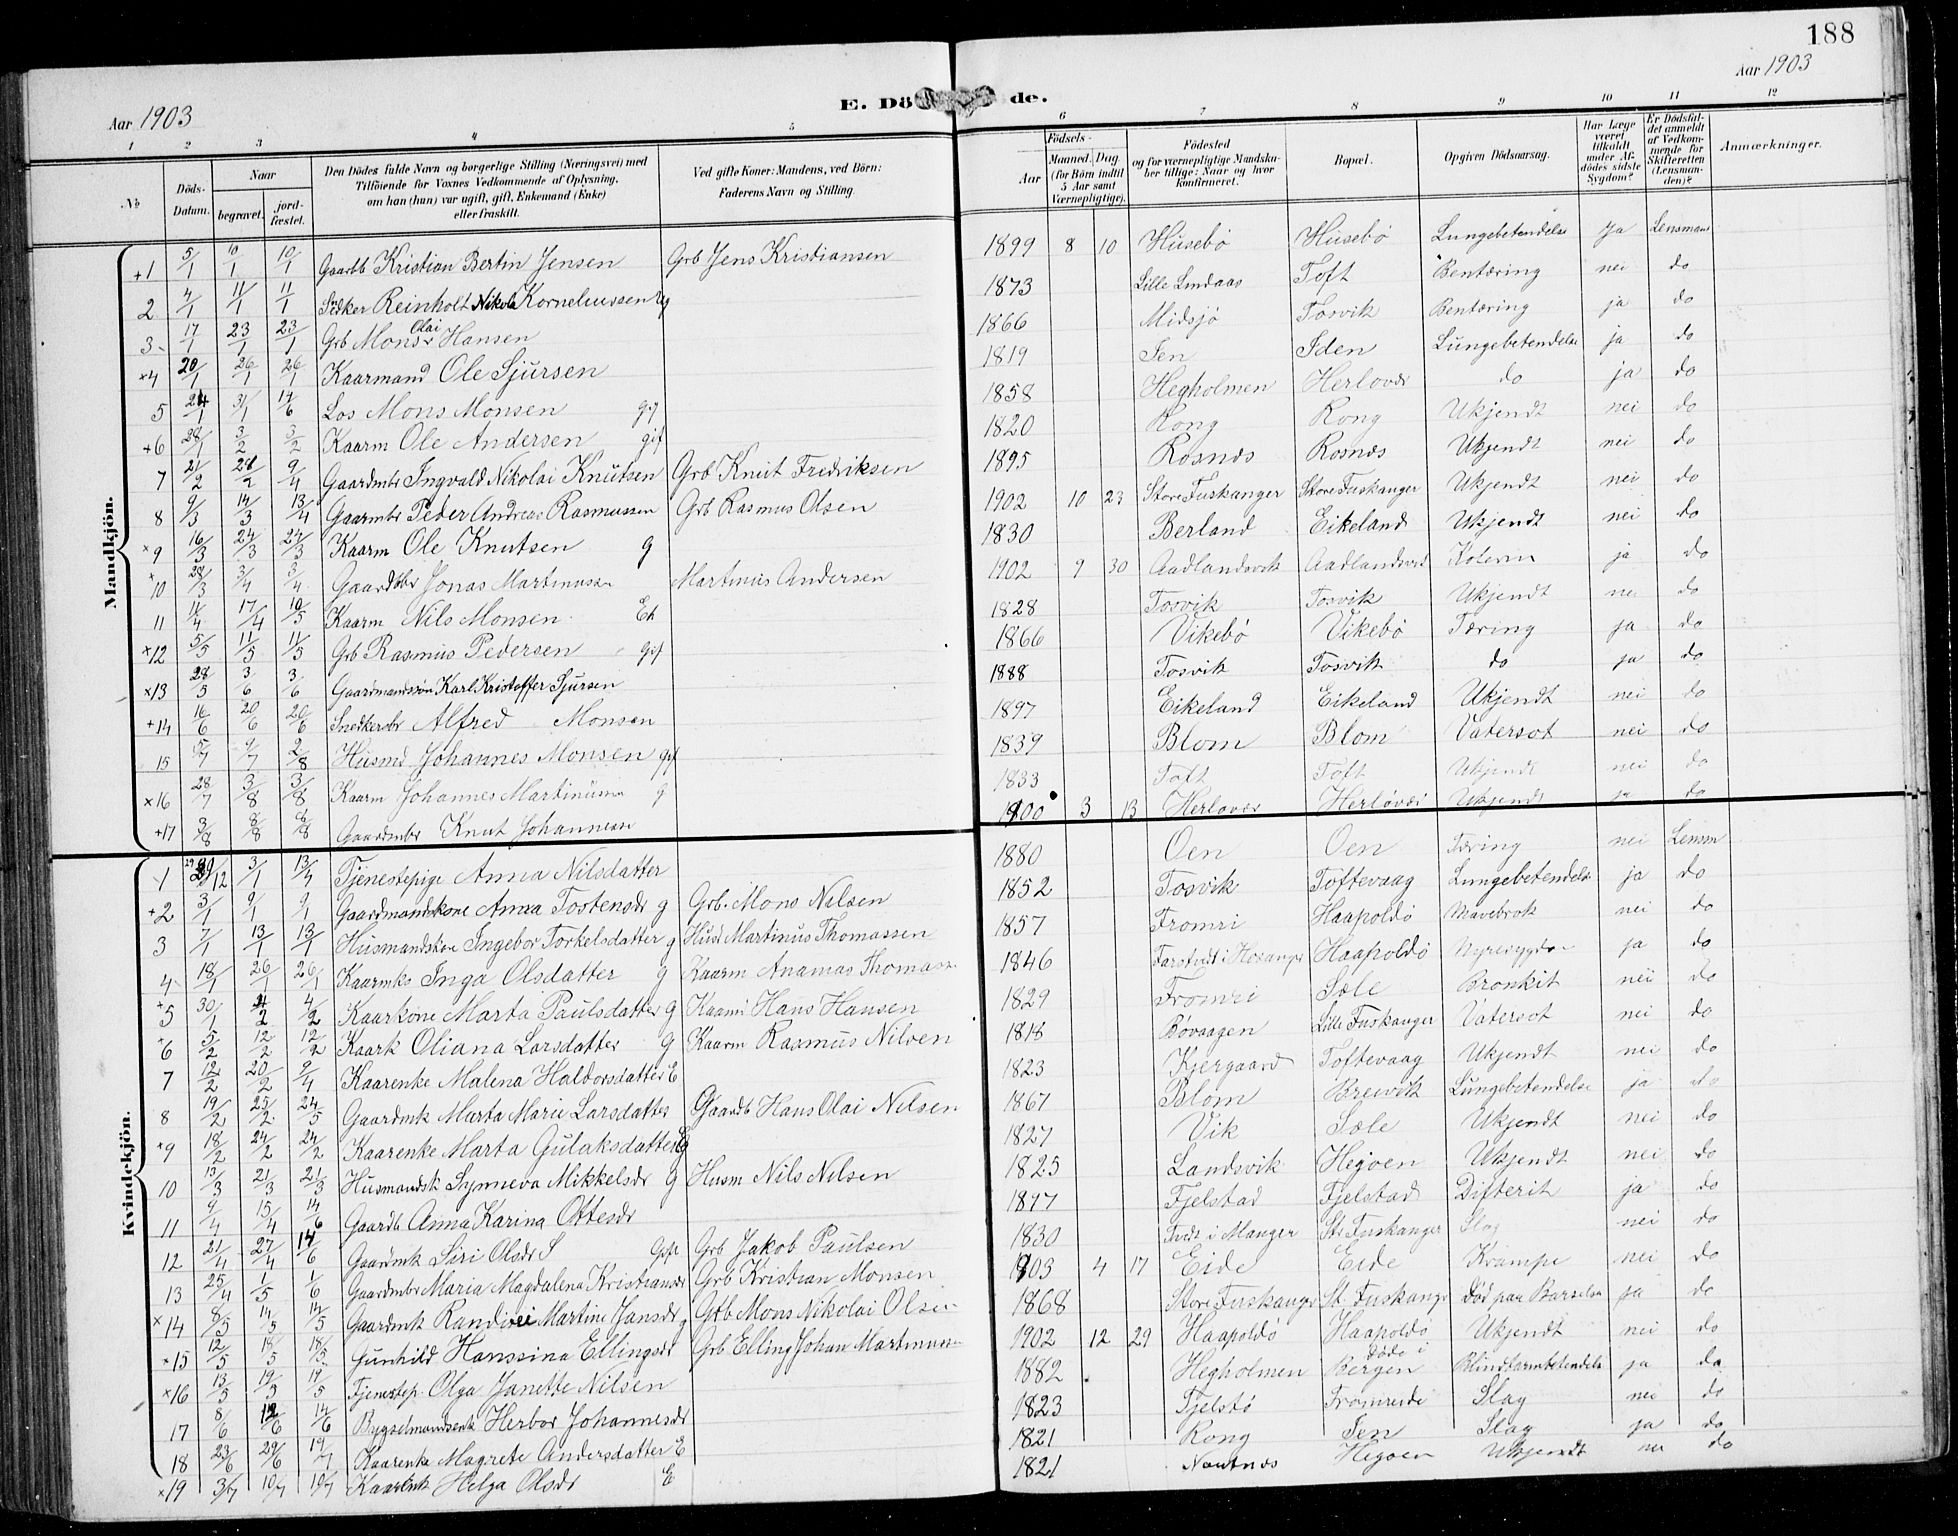 188
Aar 1903
Aar 1903
E. Dö de.
1 2 3 4 5 6 7 8 9 10 11 12
№
Döds-Datum.
Naar
begravet.
jordfæstet.
Den Dödes fulde Navn og borgerlige Stilling (Næringsvei) med Tilföiende for Voxnes Vedkommende af Oplysning, om han (hun) var ugift, gift, Enkemand (Enke) eller fraskilt.
Ved gifte Koner: Mandens, ved Börn: Faderens Navn og Stilling.
Födsels-
Aar
Maaned. Dag
(for Börn indtil 5 Aar samt Værnepligtige).
Födested og for værnepligtige Mandskaber tillige: Naar og hvor konfirmeret.
Bopæl.
Opgiven Dödsaarsag.
Har Læge været tilkaldt under Afdödes sidste Sygdom?
Er Dödsfaldet anmeldt af Vedkommende for Skifteretten (Lensmanden)?
Anmærkninger.
Mandkjön.
+1 5/1 10/1 10/1 Gaardb Kristian Bertin Jensen Grb Jens Kristiansen 1899 8 10 Husebö Husebö Lungebetendelse Ja Lensmand
2 4/1 11/1 11/1 Reinholt Nikolai Korneliussen Ug 1873 Lille Lindaas Toft Bentæring nei do
3 17/1 23/1 23/1 Grb Mons Olai Hansen 1866 Midsjö Tosvik Bentæring ja do
×4 20/1 26/1 26/1 Kaarmand Ole Sjursen 1819 Sen Iden Lungebetendelse ja do
5 24/1 31/1 14/6 Los Mons Monsen gif 1858 Hegholmen Herlover do ja do
+6 28/1 3/2 3/2 Kaarm Ole Andersen gif 1820 Rong Rong Ukjendt nei do
7 21/2 28/2 9/4 Gaardmbr Ingvald Nikolai Knutsen Grb Knut Fredriksen 1895 Rosnes Rosnes Ukjendt nei do
8 9/3 14/3 13/4 Gaarmbr Peder Andreas Rasmussen Grb Rasmus Olsen 1902 10 23 Store Fuskanger Store Fuskanger Ukjendt nei do
×9 16/3 24/3 24/3 Kaarm Ole Knutsen g 1830 Berland Eikeland Ukjendt nei do
+10 28/3 3/4 3/4 Jonas Martinussen Martinus Andersen 1902 9 30 Aadlandsvik Aadlandsvik Kolerin ja do
11 11/4 17/4 10/5 Kaarm Nils Monsen Ek 1828 Tosvik Tosvik Ukjendt nei do
×12 5/5 11/5 11/5 Grb Rasmus Pedersen gif 1866 Vikebö Vikebö Tæring ja do
×13 28/5 3/6 3/6 Gaardmandssön Karl Kristoffer Sjursen 1888 Tosvik Tosvik do ja do
+14 16/6 20/6 20/6 Snedkersbr Alfred Monsen 1897 Eikeland Eikeland Ukjendt nei do
15 5/7 9/7 2/8 Husmd Johannes Monsen gif 1839 Blom Blom Vatersot nei do
×16 28/7 3/8 3/8 Kaarm Johannes Martinussen g 1833 Toft Toft Ukjendt nei do
+17 3/8 8/8 8/8 Gaardmbr Knut Johannessen 1900 3 13 Herlover Herlöver Ukjendt ja do
Kvindekjön.
1 29/12 3/1 13/4 Tjenestepige Anna Nilsdatter 1880 Oen Oen Tæring nei Lensm
+2 3/1 9/1 9/1 Gaardmandskone Anna Tostensdr g Grb. Mons Nilsen 1852 Tosvik Toftevaag Lungebetendelse ja do
3 7/1 13/1 13/1 Husmandskone Ingebor Torkelsdatter g Husd Martinus Thomassen 1857 Fromri Haapoldö Mavebrok nei do
4 18/1 26/1 26/1 Kaarmks Inga Olsdatter g Kaarm Ananias Thomassen 1846 Hosanger Haapoldö Nyresygdom ja do
+5 30/1 4/2 4/2 Kaarkone Marta Paulsdatter g Kaarm Hans Hansen 1829 Fromri Sæle Bronkit nei do
×6 5/2 12/2 12/2 Kaark Oliana Larsdatter g Kaarm Rasmus Nilsen 1818 Bövaagen Lille Fuskanger Vatersot nei do
7 12/2 20/2 9/4 Kaarenke Malena Haldorsdatter E 1823 Kjergaard Toftevaag Ukjendt nei do
8 19/2 25/2 24/5 Gaardmk Marta Marie Larsdatter Gaardb Hans Olai Nilsen 1867 Blom Breivik Lungebetendelse ja do
×9 18/2 24/2 24/2 Kaarenke Marta Gulaksdatter E 1827 Vik Sæle Ukjendt nei do
10 13/3 21/3 21/3 Husmandsk Synneva Mikkelsdr g Husm Nils Nilsen 1825 Landsvik Hegoen Ukjendt nei do
11 9/4 15/4 14/6 Gaardb Anna Karina Ottesdr 1897 Fjelstad Fjelstad Difterit ja do
12 21/4 27/4 14/6 Gaardmk Siri Olsdr Grb Jakob Paulsen 1830 Tvedt i Manger St. Fuskanger Slag nei do
13 25/4 1/5 1/6 Gaardmbr Maria Magdalena Kristiansdr Grb Kristian Monsen 1903 4 17 Eide Eide Krampe nei do
×14 8/5 14/5 14/5 Gaardmk Randi Martine Jansdr g Grb Mons Nikolai Olsen 1868 Store Fuskanger St. Fuskanger Död paa Barselseng ja do
×15 12/5 18/5 18/5 Gunhild Hanssina Ellingsdr Grb Elling Johan Martinussen 1902 12 29 Haapoldö Haapoldö Ukjendt nei do
×16 13/5 19/5 19/5 Tjenestep. Olga Janette Nilsen 1882 Hegholmen döde i Bergen Blindtarmbetendelse ja do
17 8/6 12/6 14/6 Bygselmandsenk Herbor Johannesdr 1823 Fjelstö Fromreide Slag nei do
18 23/6 29/6 19/7 Kaarenke Magrete Andersdatter E 1821 Rong Sen Slag ja do
×19 3/7 10/7 10/7 Kaarenk Helga Olsdr E 1821 Nautnes Hegoen Ukjendt nei do